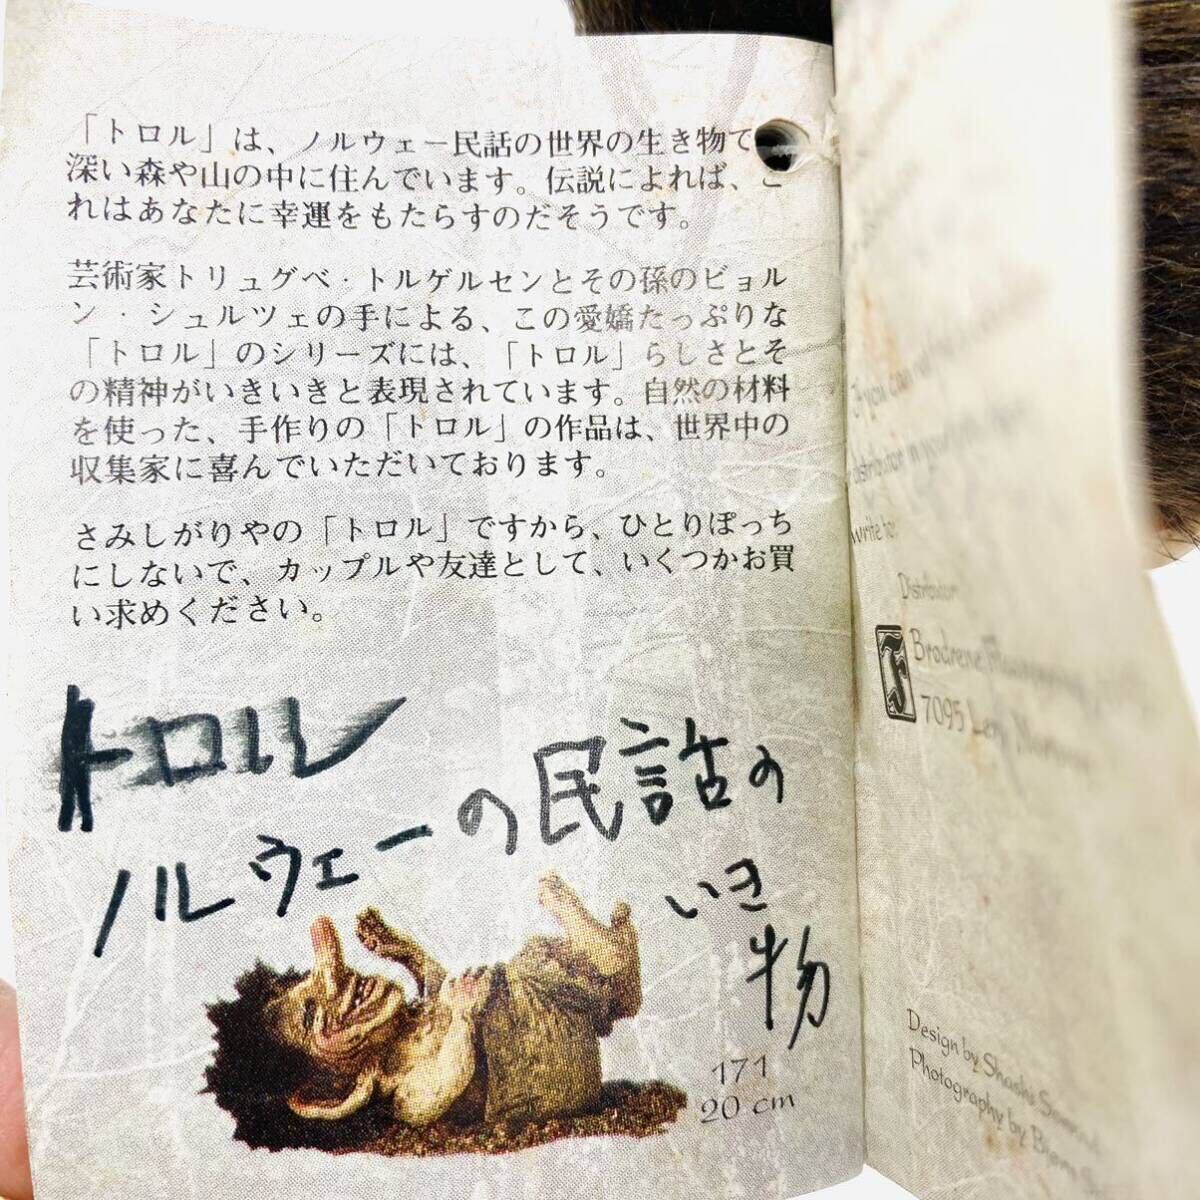 「トロル」は、ノルウェー民話の世界の生き物で
深い森や山の中に住んでいます。伝説によれば、こ
れはあなたに幸運をもたらすのだそうです。
芸術家トリュグベ・トルゲルセンとその孫のビョル
ン・シュルツェの手による、この愛嬌たっぷりな
「トロル」のシリーズには、「トロル」らしさとそ
の精神がいきいきと表現されています。自然の材料
を使った、手作りの「トロル」の作品は、世界中の
収集家に喜んでいただいております。
さみしがりやの「トロル」ですから、ひとりぽっち
にしないで、カップルや友達として、いくつかお買
い求めください。
トロル
ノルウェーの民話の
いき
物
171
20 cm
If you can not
distributor in your
write to:
Distributor
Brodrene
7095
Design by Shashi
Photography by Bjorn